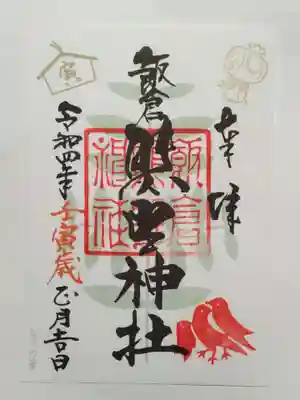 奉拝
飯倉熊野神社
飯倉
熊野
神社
寅
令和四年壬寅歳正月吉日